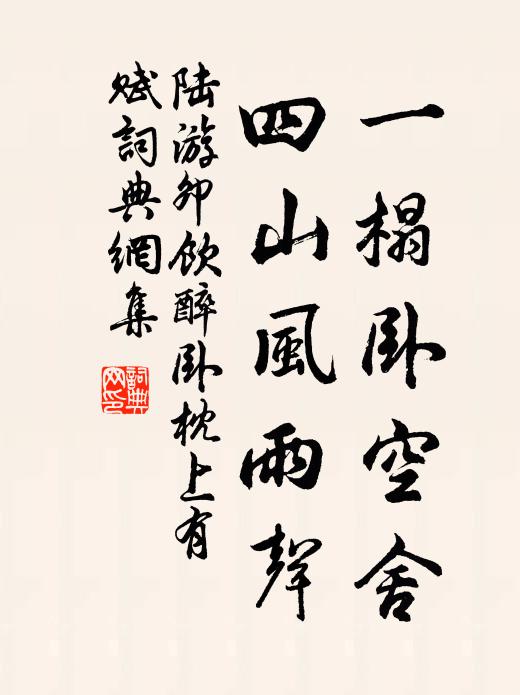 一榻卧空舍
四山風雨聲
陆游卯飲醉卧枕上有
赋詞典網集
詞典網印